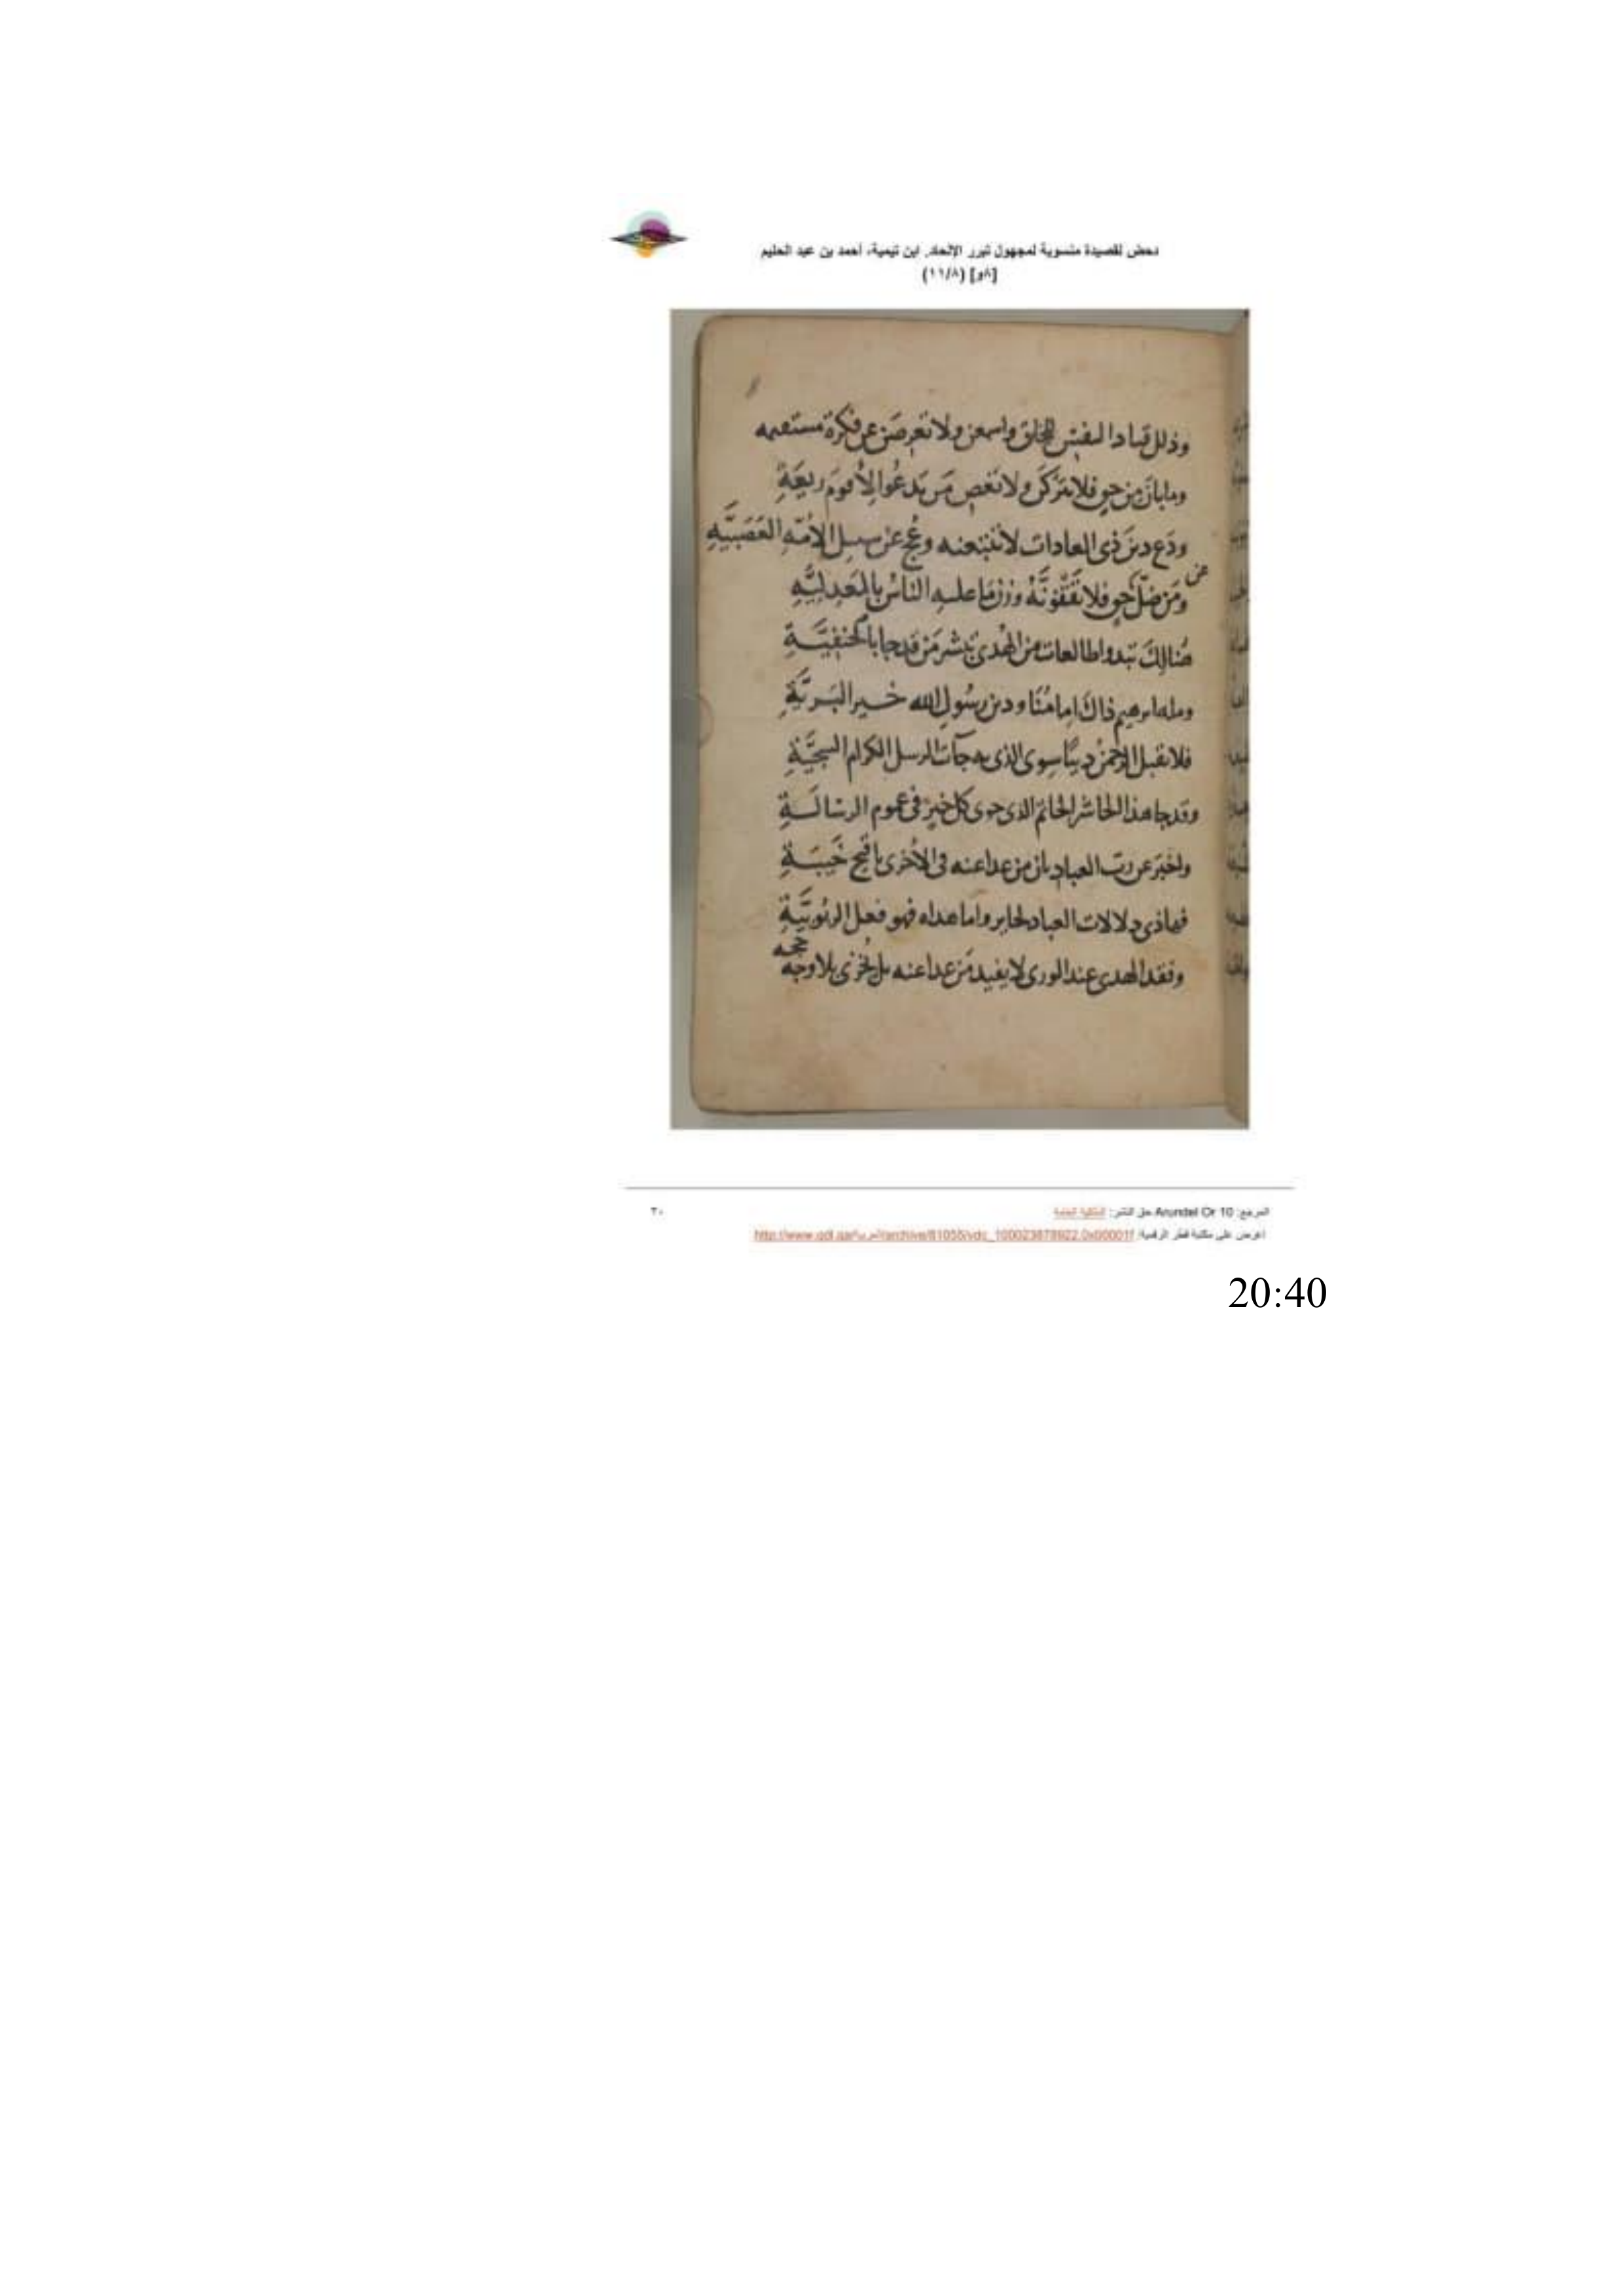 دحض لقصيدة منسوبة لمجهول تبرر الإلحاد. ابن تيمية، أحمد بن عبد الحليم
[٨و] (١١/٨)
وذلل قياد النفس للحق واسمعن ولا تعرضن عن فكرة مستقيمه
وما بان من حق فلا تتركن ولا تعص من يدعوا لأقوم ريعة
ودع دين ذي العادات لا تتبعنه وعج عن سبيل الأمة الغضبيه
ومن ضل عن حق فلا تقفونه وزن ما عليه الناس بالمعدليه
هنالك تبدوا طالعات من الهدى تبشر من قد جا بالحنفية
وملة ابرهيم ذاك امامنا ودين رسول الله خير البرية
فلا يقبل الرحمن دينا سوى الذي به جات الرسل الكرام السجية
وقد جا هذا الحاشر الخاتم الذي حوى كل خير في عموم الرسالة
واخبر عن رب العباد بان من عدا عنه في الأخرى باقبح خيبة
فهاذي دلالات العباد لحاير واما هداه فهو فعل الربوبية
وفقد الهدى عند الورى لا يفيد من عدا عنه بل يخزى بلا وجه
حجه
المرجع: Arundel Or 10 حق النشر: الملكية العامة
اعرض على مكتبة قطر الرقمية: http://www.qdl.qa/العربية/archive/81055/vdc_100023678922.0x00001f
٣٠
20:40